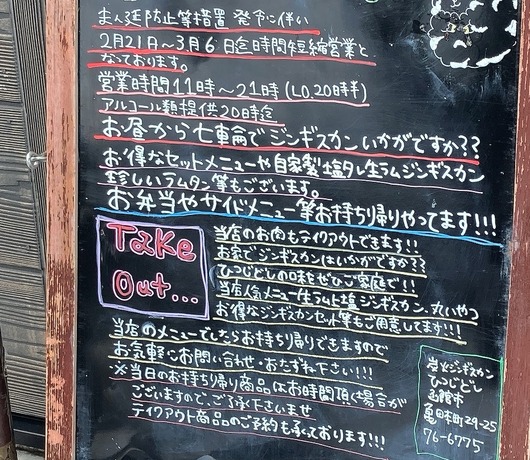 まん延防止等措置 発令に伴い
2月21日～3月6日迄時間短縮営業と
なっております。
営業時間11時～21時(L.O.20時半)
アルコール類提供20時迄
お昼から七輪でジンギスカンいかがですか??
お得なセットメニューや自家製塩タレ生ラムジンギスカン
珍しいラムタン等もございます。
お弁当やサイドメニュー等お持ち帰りやってます!!!
Take
Out...
当店のお肉もテイクアウトできます!!
お家でジンギスカンはいかがですか??
ひつじどしの味をぜひご家庭で!!
当店人気メニュー生ラム塩ジンギスカン、丸いやつ
お得なジンギスカンセット等もご用意してます!!!
当店のメニューでしたらお持ち帰りできますので
お気軽にお問い合わせ・おたずね下さい!!!
※当日のお持ち帰り商品はお時間頂く場合が
ございますので、ご了承下さいませ
テイクアウト商品のご予約も承っております!!!
炭火ジンギスカン
ひつじどし
函館市
亀田本町29-25
76-6775